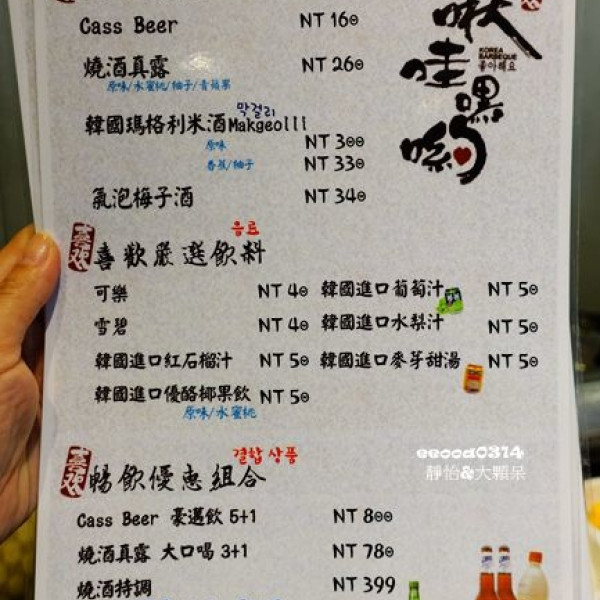 Cass Beer NT 160
燒酒真露 NT 260
原味/水蜜桃/柚子/青蘋果
막걸리
韓國瑪格利米酒Makgeolli
原味 NT 300
香蕉/柚子 NT 330
氣泡梅子酒 NT 340
啾哇嘿喲
KOREA
BARBEQUE
좋아해요
음료
喜歡嚴選飲料
可樂 NT 40 韓國進口葡萄汁 NT 50
雪碧 NT 40 韓國進口水梨汁 NT 50
韓國進口紅石榴汁 NT 50 韓國進口麥芽甜湯 NT 50
韓國進口優酪椰果飲 NT 50
原味/水蜜桃
결합 상품
暢飲優惠組合
eecca0314
靜怡&大顆呆
Cass Beer 豪邁飲 5+1 NT 800
燒酒真露 大口喝 3+1 NT 780
燒酒特調 NT 399